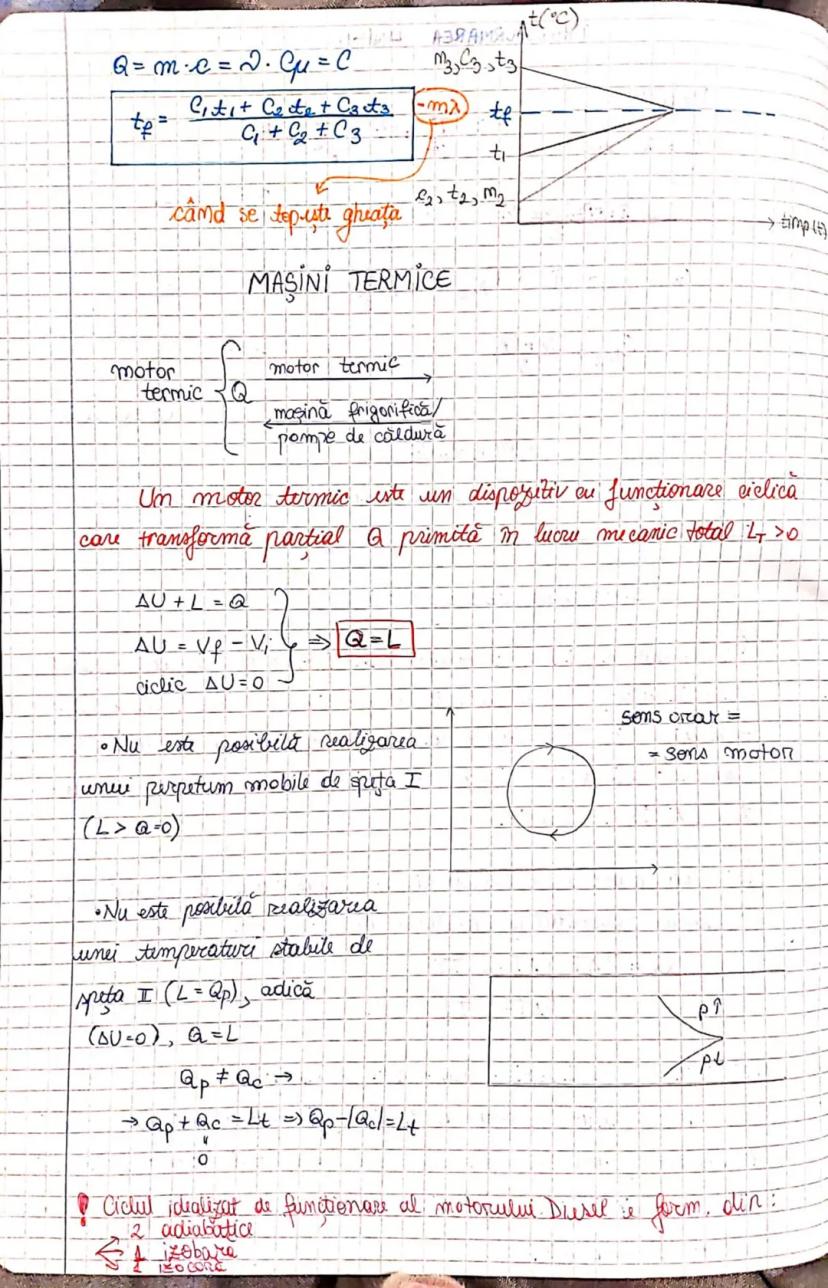 t(°C)
Q = m·c = ν·Cμ = C
m₃, C₃, t₃
tf = (C₁t₁ + C₂t₂ + C₃t₃ / C₁ + C₂ + C₃) -mλ
tf
t₁
c₂, t₂, m₂
când se topește gheața
timp(t)
MAȘINI TERMICE
motor termic { Q
motor termic
mașină frigorifică/
pompe de căldură
Un motor termic este un dispozitiv cu funcționare ciclică
care transformă parțial Q primită în lucru mecanic total L_T >0
ΔU + L = Q
ΔU = Vf - Vi } ⇒ Q=L
ciclic ΔU=0
sens orar =
= sens motor
•Nu este posibilă realizarea
unui perpetum mobile de speța I
(L > Q=0)
•Nu este posibilă realizarea
unei temperaturi stabile de
speța II (L = Qp), adică
(ΔU=0), Q=L
p↑
p↓
Qp ≠ Qc →
→ Qp + Qc = Lt ⇒ Qp-|Qc|=Lt
0
! Ciclul idealizat de funcționare al motorului Diesel e form. din:
2 adiabatice
1 izobara
1 izocora